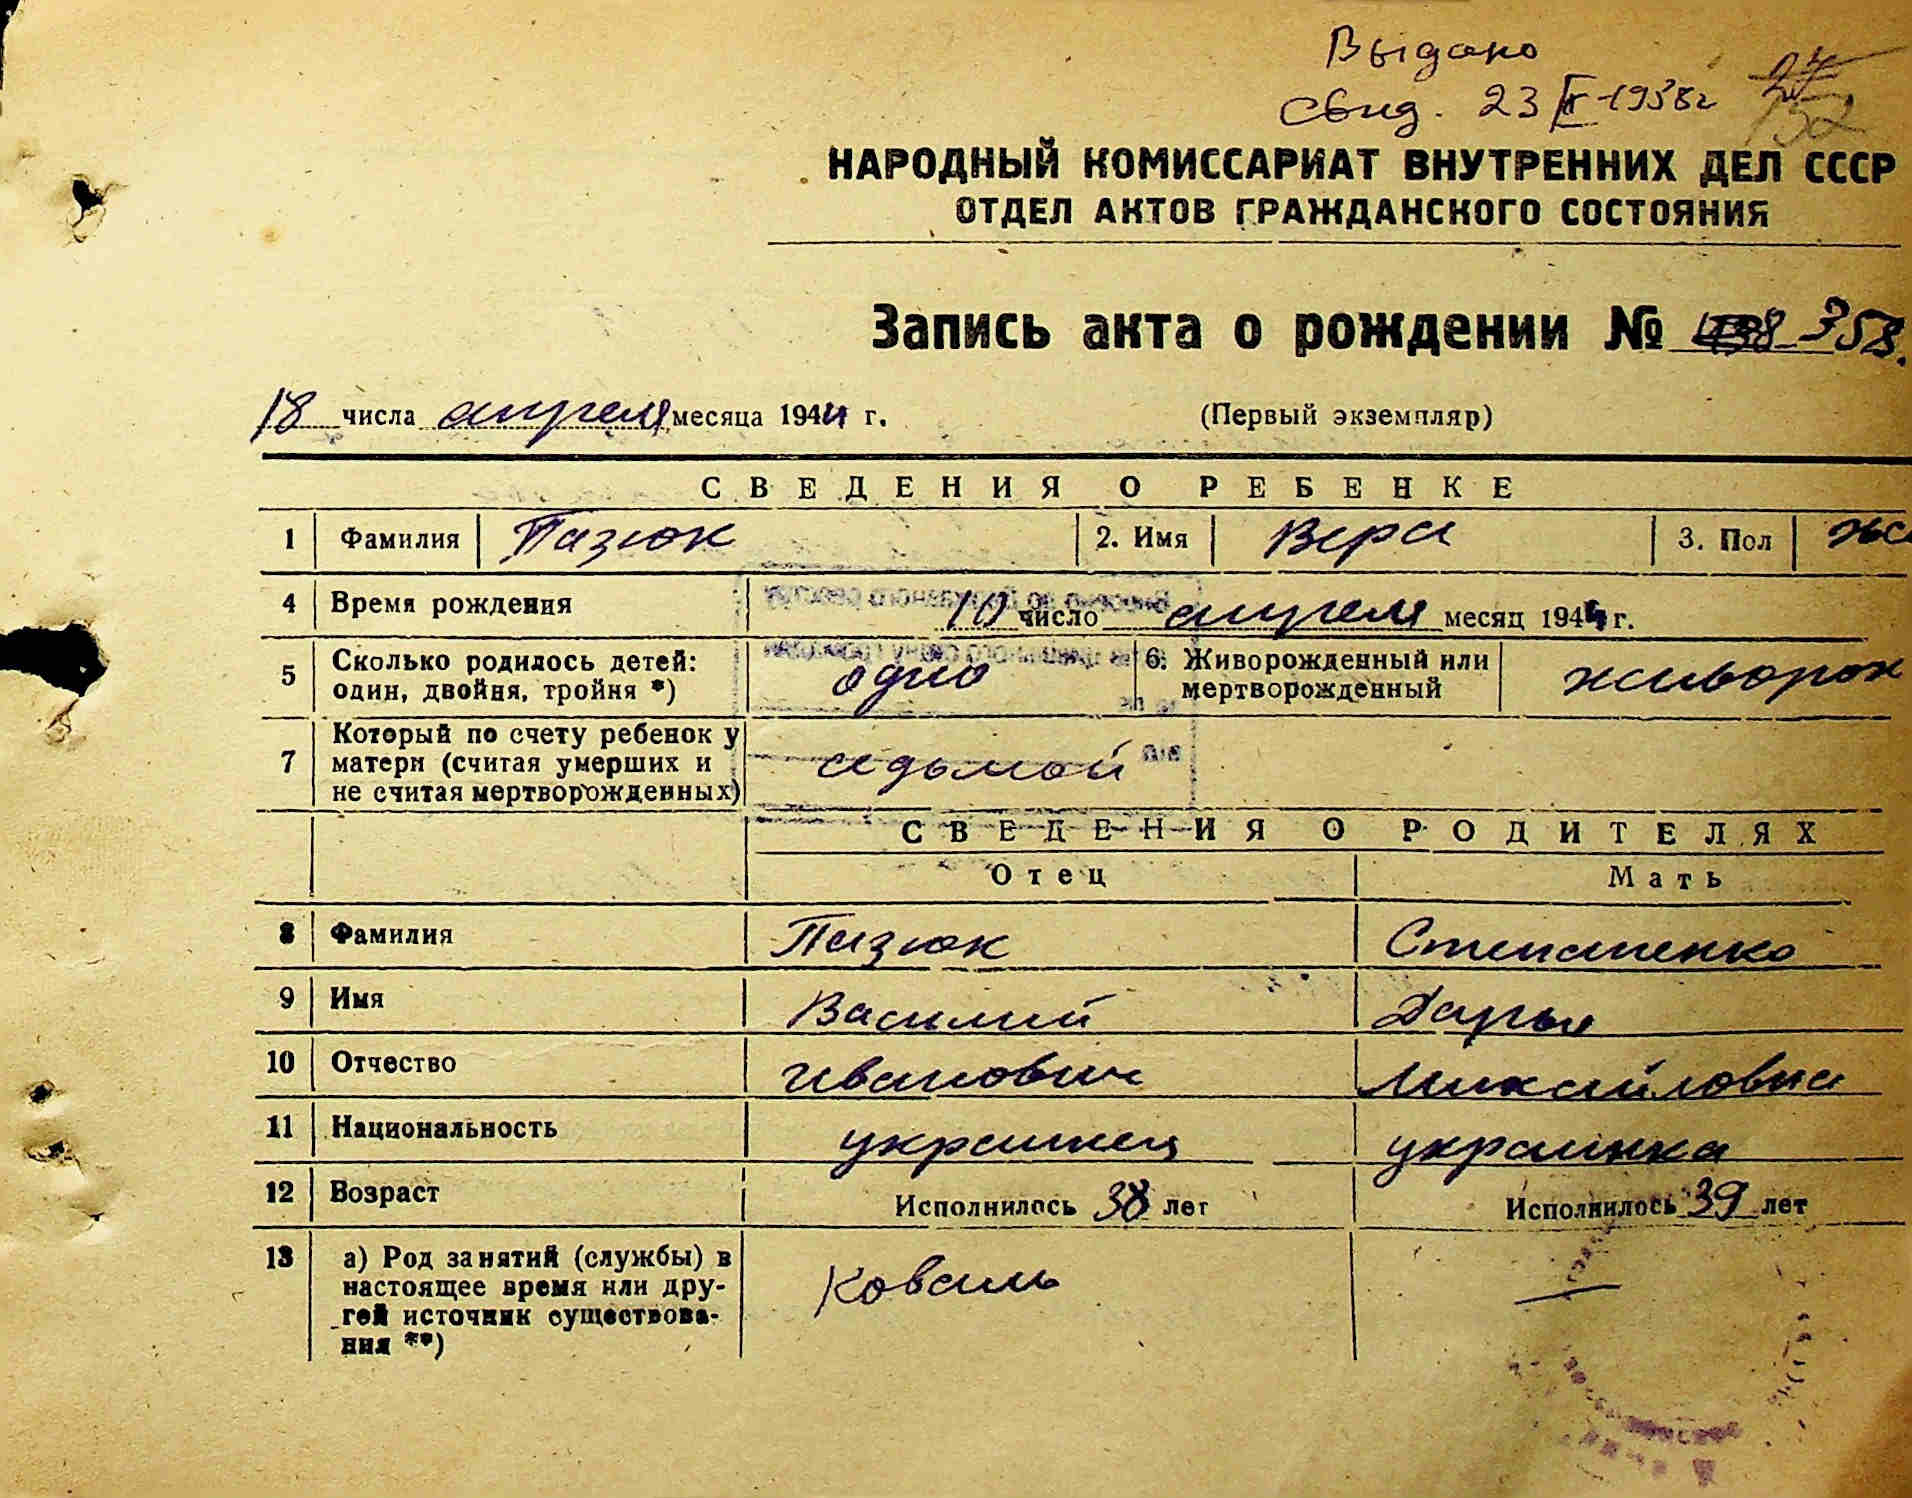 Выдано
свид. 23 II-1958г 24
152
НАРОДНЫЙ КОМИССАРИАТ ВНУТРЕННИХ ДЕЛ СССР
ОТДЕЛ АКТОВ ГРАЖДАНСКОГО СОСТОЯНИЯ
Запись акта о рождении № 358.
18 числа апреля месяца 1944 г. (Первый экземпляр)
СВЕДЕНИЯ О РЕБЕНКЕ
1 Фамилия Пазюк 2. Имя Вера 3. Пол же
4 Время рождения 10 число апреля месяц 1944 г.
5 Сколько родилось детей: один, двойня, тройня *) одно 6. Живорожденный или мертворожденный живорож
7 Который по счету ребенок у матери (считая умерших и не считая мертворожденных) седьмой
СВЕДЕНИЯ О РОДИТЕЛЯХ
Отец Мать
8 Фамилия Пазюк Степаненко
9 Имя Василий Дарья
10 Отчество Иванович Михайловна
11 Национальность украинец украинка
12 Возраст Исполнилось 38 лет Исполнилось 39 лет
13 а) Род занятий (службы) в настоящее время или дру-
гой источник существова-
ния **) Коваль —